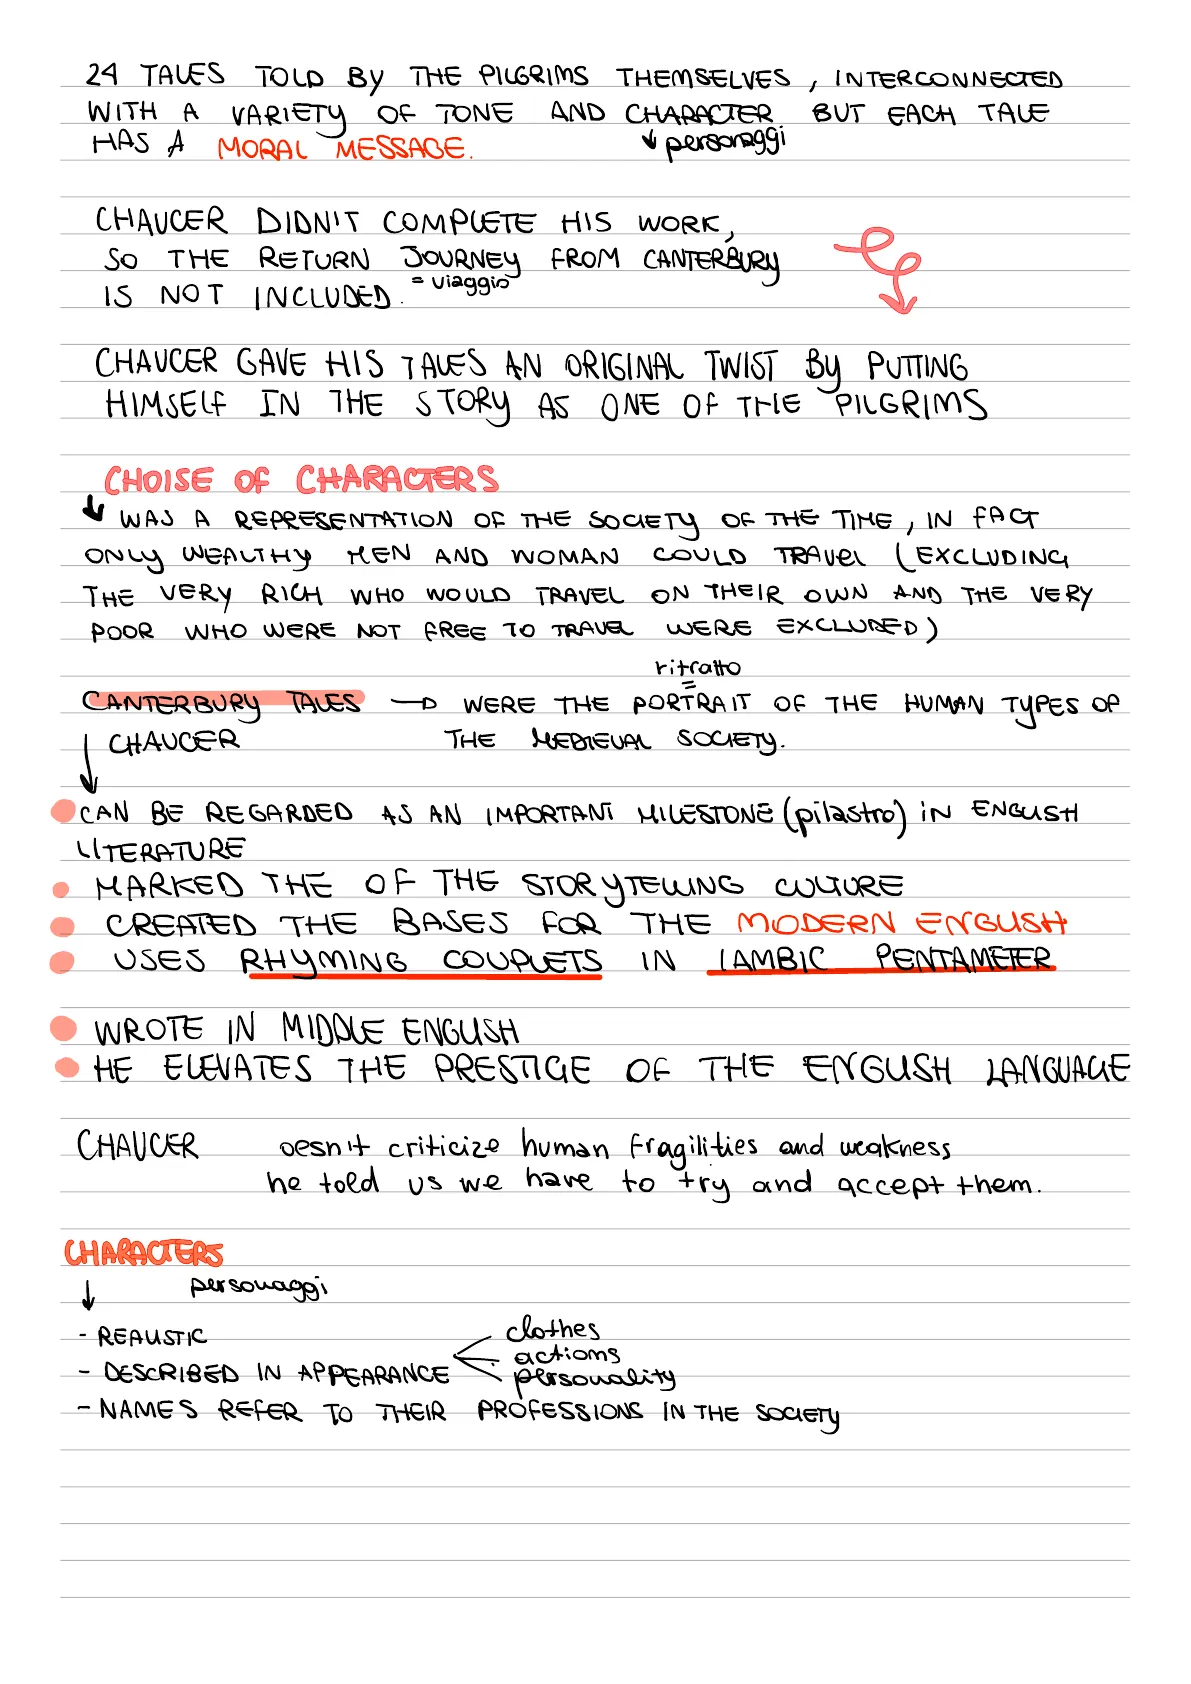 24 TALES TOLD BY THE PILGRIMS THEMSELVES, INTERCONNECTED
WITH A VARIETY OF TONE AND CHARACTER. BUT EACH TALE
↓ personaggi
HAS A MORAL MESSAGE.
CHAUCER DIDN'T COMPLETE HIS WORK,
SO THE RETURN JOURNEY FROM CANTERBURY
= viaggio
IS NOT INCLUDED.
CHAUCER GAVE HIS TALES AN ORIGINAL TWIST BY PUTTING
HIMSELF IN THE STORY AS ONE OF THE PILGRIMS
CHOISE OF CHARACTERS
↓ WAS A REPRESENTATION OF THE SOCIETY OF THE TIME, IN FACT
ONLY WEALTHY MEN AND WOMAN COULD TRAVEL (EXCLUDING
THE VERY RICH WHO WOULD TRAVEL ON THEIR OWN AND THE VERY
POOR WHO WERE NOT FREE TO TRAVEL WERE EXCLUDED)
ritratto
=
CANTERBURY TALES → WERE THE PORTRAIT OF THE HUMAN TYPES OF
↓ CHAUCER THE MEDIEVAL SOCIETY.
CAN BE REGARDED AS AN IMPORTANT MILESTONE (pilastro) IN ENGLISH
LITERATURE
MARKED THE OF THE STORYTELLING CULTURE
CREATED THE BASES FOR THE MODERN ENGLISH
USES RHYMING COUPLETS IN IAMBIC PENTAMETER
WROTE IN MIDDLE ENGLISH
HE ELEVATES THE PRESTIGE OF THE ENGLISH LANGUAGE
CHAUCER oesn't criticize human fragilities and weakness
he told us we have to try and accept them.
CHARACTERS
↓ personaggi
- REALISTIC
clothes
actions
- DESCRIBED IN APPEARANCE
personality
- NAMES REFER TO THEIR PROFESSIONS IN THE SOCIETY